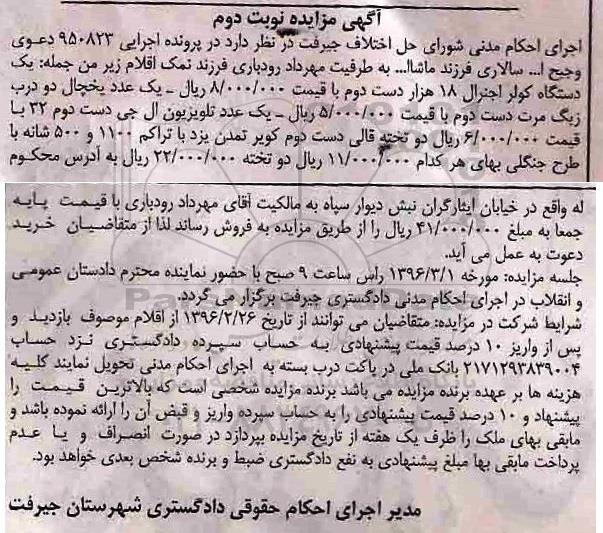 آگهی مزایده نوبت دوم
اجرای احکام مدنی شورای حل اختلاف جیرفت در نظر دارد در پرونده اجرایی ۹۵۰۸۲۳ دعوی
وجیح ا... سالاری فرزند ماشاا... به طرفیت مهرداد رودباری فرزند نمک اقلام زیر من جمله: یک
دستگاه کولر اجنرال ۱۸ هزار دست دوم با قیمت ۸/۰۰۰/۰۰۰ ریال ـ یک عدد یخچال دو درب
زیگ مرت دست دوم با قیمت ۵/۰۰۰/۰۰۰ ریال ـ یک عدد تلویزیون ال جی دست دوم ۳۲ با
قیمت ۶/۰۰۰/۰۰۰ ریال دو تخته قالی دست دوم کویر تمدن یزد با تراکم ۱۱۰۰ و ۵۰۰ شانه با
طرح جنگلی بهای هر کدام ۱۱/۰۰۰/۰۰۰ ریال دو تخته ۲۲/۰۰۰/۰۰۰ ریال به آدرس محکوم
له واقع در خیابان ایثارگران نبش دیوار سپاه به مالکیت آقای مهرداد رودباری با قیمت پایه
جمعا به مبلغ ۴۱/۰۰۰/۰۰۰ ریال را از طریق مزایده به فروش رساند لذا از متقاضیان خرید
دعوت به عمل می آید.
جلسه مزایده: مورخه ۱۳۹۶/۳/۱ راس ساعت ۹ صبح با حضور نماینده محترم دادستان عمومی
و انقلاب در اجرای احکام مدنی دادگستری جیرفت برگزار می گردد.
شرایط شرکت در مزایده: متقاضیان می توانند از تاریخ ۱۳۹۶/۲/۲۶ از اقلام موصوف بازدید و
پس از واریز ۱۰ درصد قیمت پیشنهادی به حساب سپرده دادگستری نزد حساب
۲۱۷۱۲۹۳۸۳۹۰۰۴ بانک ملی در پاکت درب بسته به اجرای احکام مدنی تحویل نمایند کلیه
هزینه ها بر عهده برنده مزایده می باشد برنده مزایده شخصی است که بالاترین قیمت را
پیشنهاد و ۱۰ درصد قیمت پیشنهادی را به حساب سپرده واریز و قبض آن را ارائه نموده باشد و
مابقی بهای ملک را ظرف یک هفته از تاریخ مزایده بپردازد در صورت انصراف و یا عدم
پرداخت مابقی بها مبلغ پیشنهادی به نفع دادگستری ضبط و برنده شخص بعدی خواهد بود.
مدیر اجرای احکام حقوقی دادگستری شهرستان جیرفت